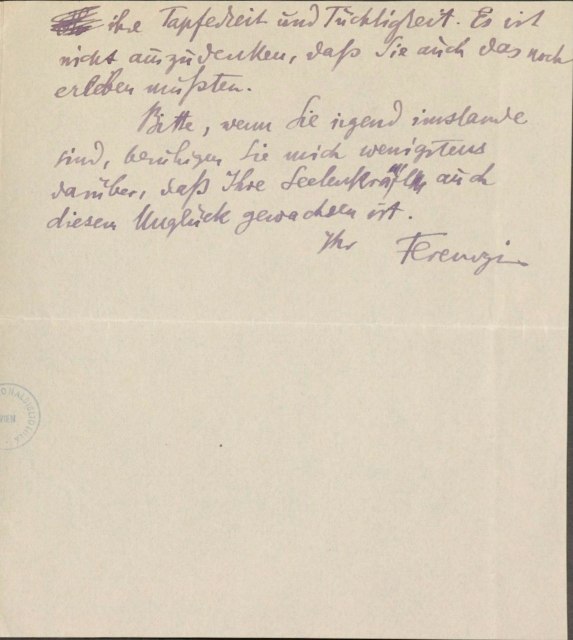 ihre Tapferkeit und Tüchtigkeit. Es ist
nicht auszudenken, daß Sie auch das noch
erleben mußten.
Bitte, wenn Sie irgend imstande
sind, beruhigen Sie mich wenigstens
darüber, daß Ihre Seelenkraft auch
diesem Unglück gewachsen ist.
Ihr Ferenczi
WIEN